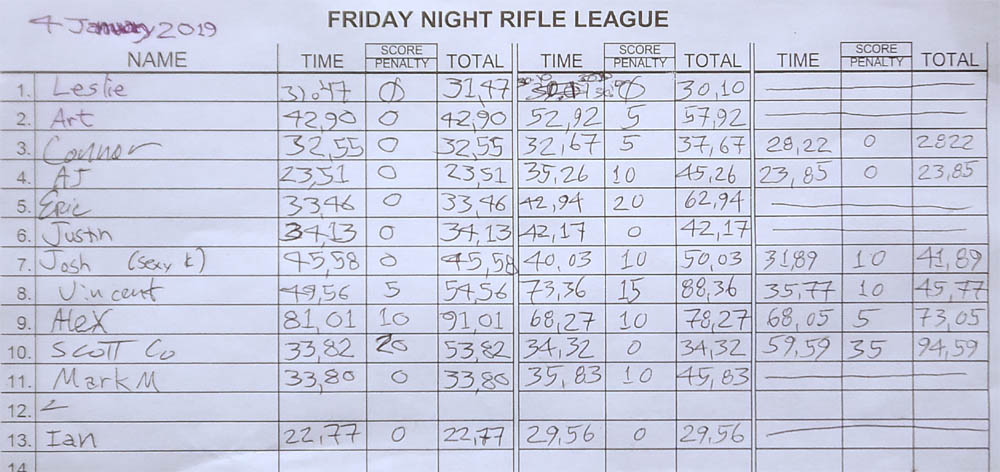 4 January 2019
FRIDAY NIGHT RIFLE LEAGUE
NAME TIME SCORE PENALTY TOTAL TIME SCORE PENALTY TOTAL TIME SCORE PENALTY TOTAL
1. Leslie 31.47 0 31,47 0 30,10
2. Art 42,90 0 42,90 52,92 5 57,92
3. Connor 32,55 0 32,55 32,67 5 37,67 28,22 0 2822
4. AJ 23,51 0 23,51 35,26 10 45,26 23,85 0 23,85
5. Eric 33,46 0 33,46 42,94 20 62,94
6. Justin 34,13 0 34,13 42,17 0 42,17
7. Josh (sexy k) 45,58 0 45,58 40,03 10 50,03 31,89 10 41,89
8. Vincent 49,56 5 54,56 73,36 15 88,36 35,77 10 45,77
9. Alex 81,01 10 91,01 68,27 10 78,27 68,05 5 73,05
10. Scott Co 33,82 20 53,82 34,32 0 34,32 59,59 35 94,59
11. Mark M 33,80 0 33,80 35,83 10 45,83
12.
13. Ian 22,77 0 22,77 29,56 0 29,56
14